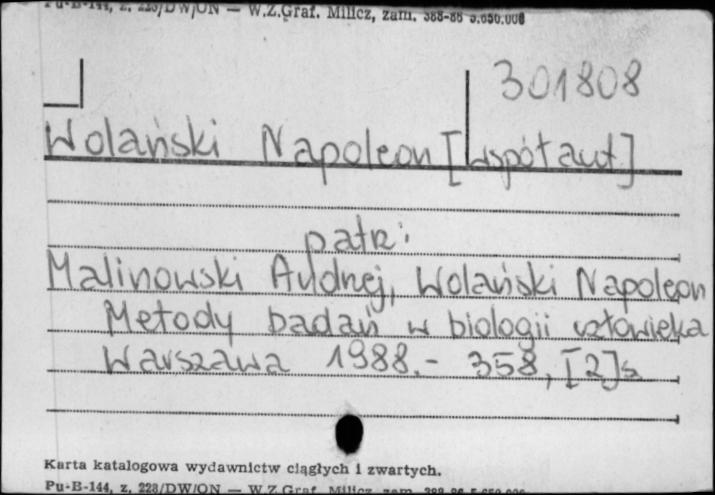 Pu-B-144, z. 223/DW/ON — W.Z.Graf. Milicz, zam. 388-86 5.650.000
301808
Wolański Napoleon [współaut.]
patrz:
Malinowski Andrzej, Wolański Napoleon
Metody badań w biologii człowieka
Warszawa 1988.- 358, [2] s.
Karta katalogowa wydawnictw ciągłych i zwartych.
Pu-B-144, z. 223/DW/ON — W.Z.Graf. Milicz, zam. 388-86 5.650.000